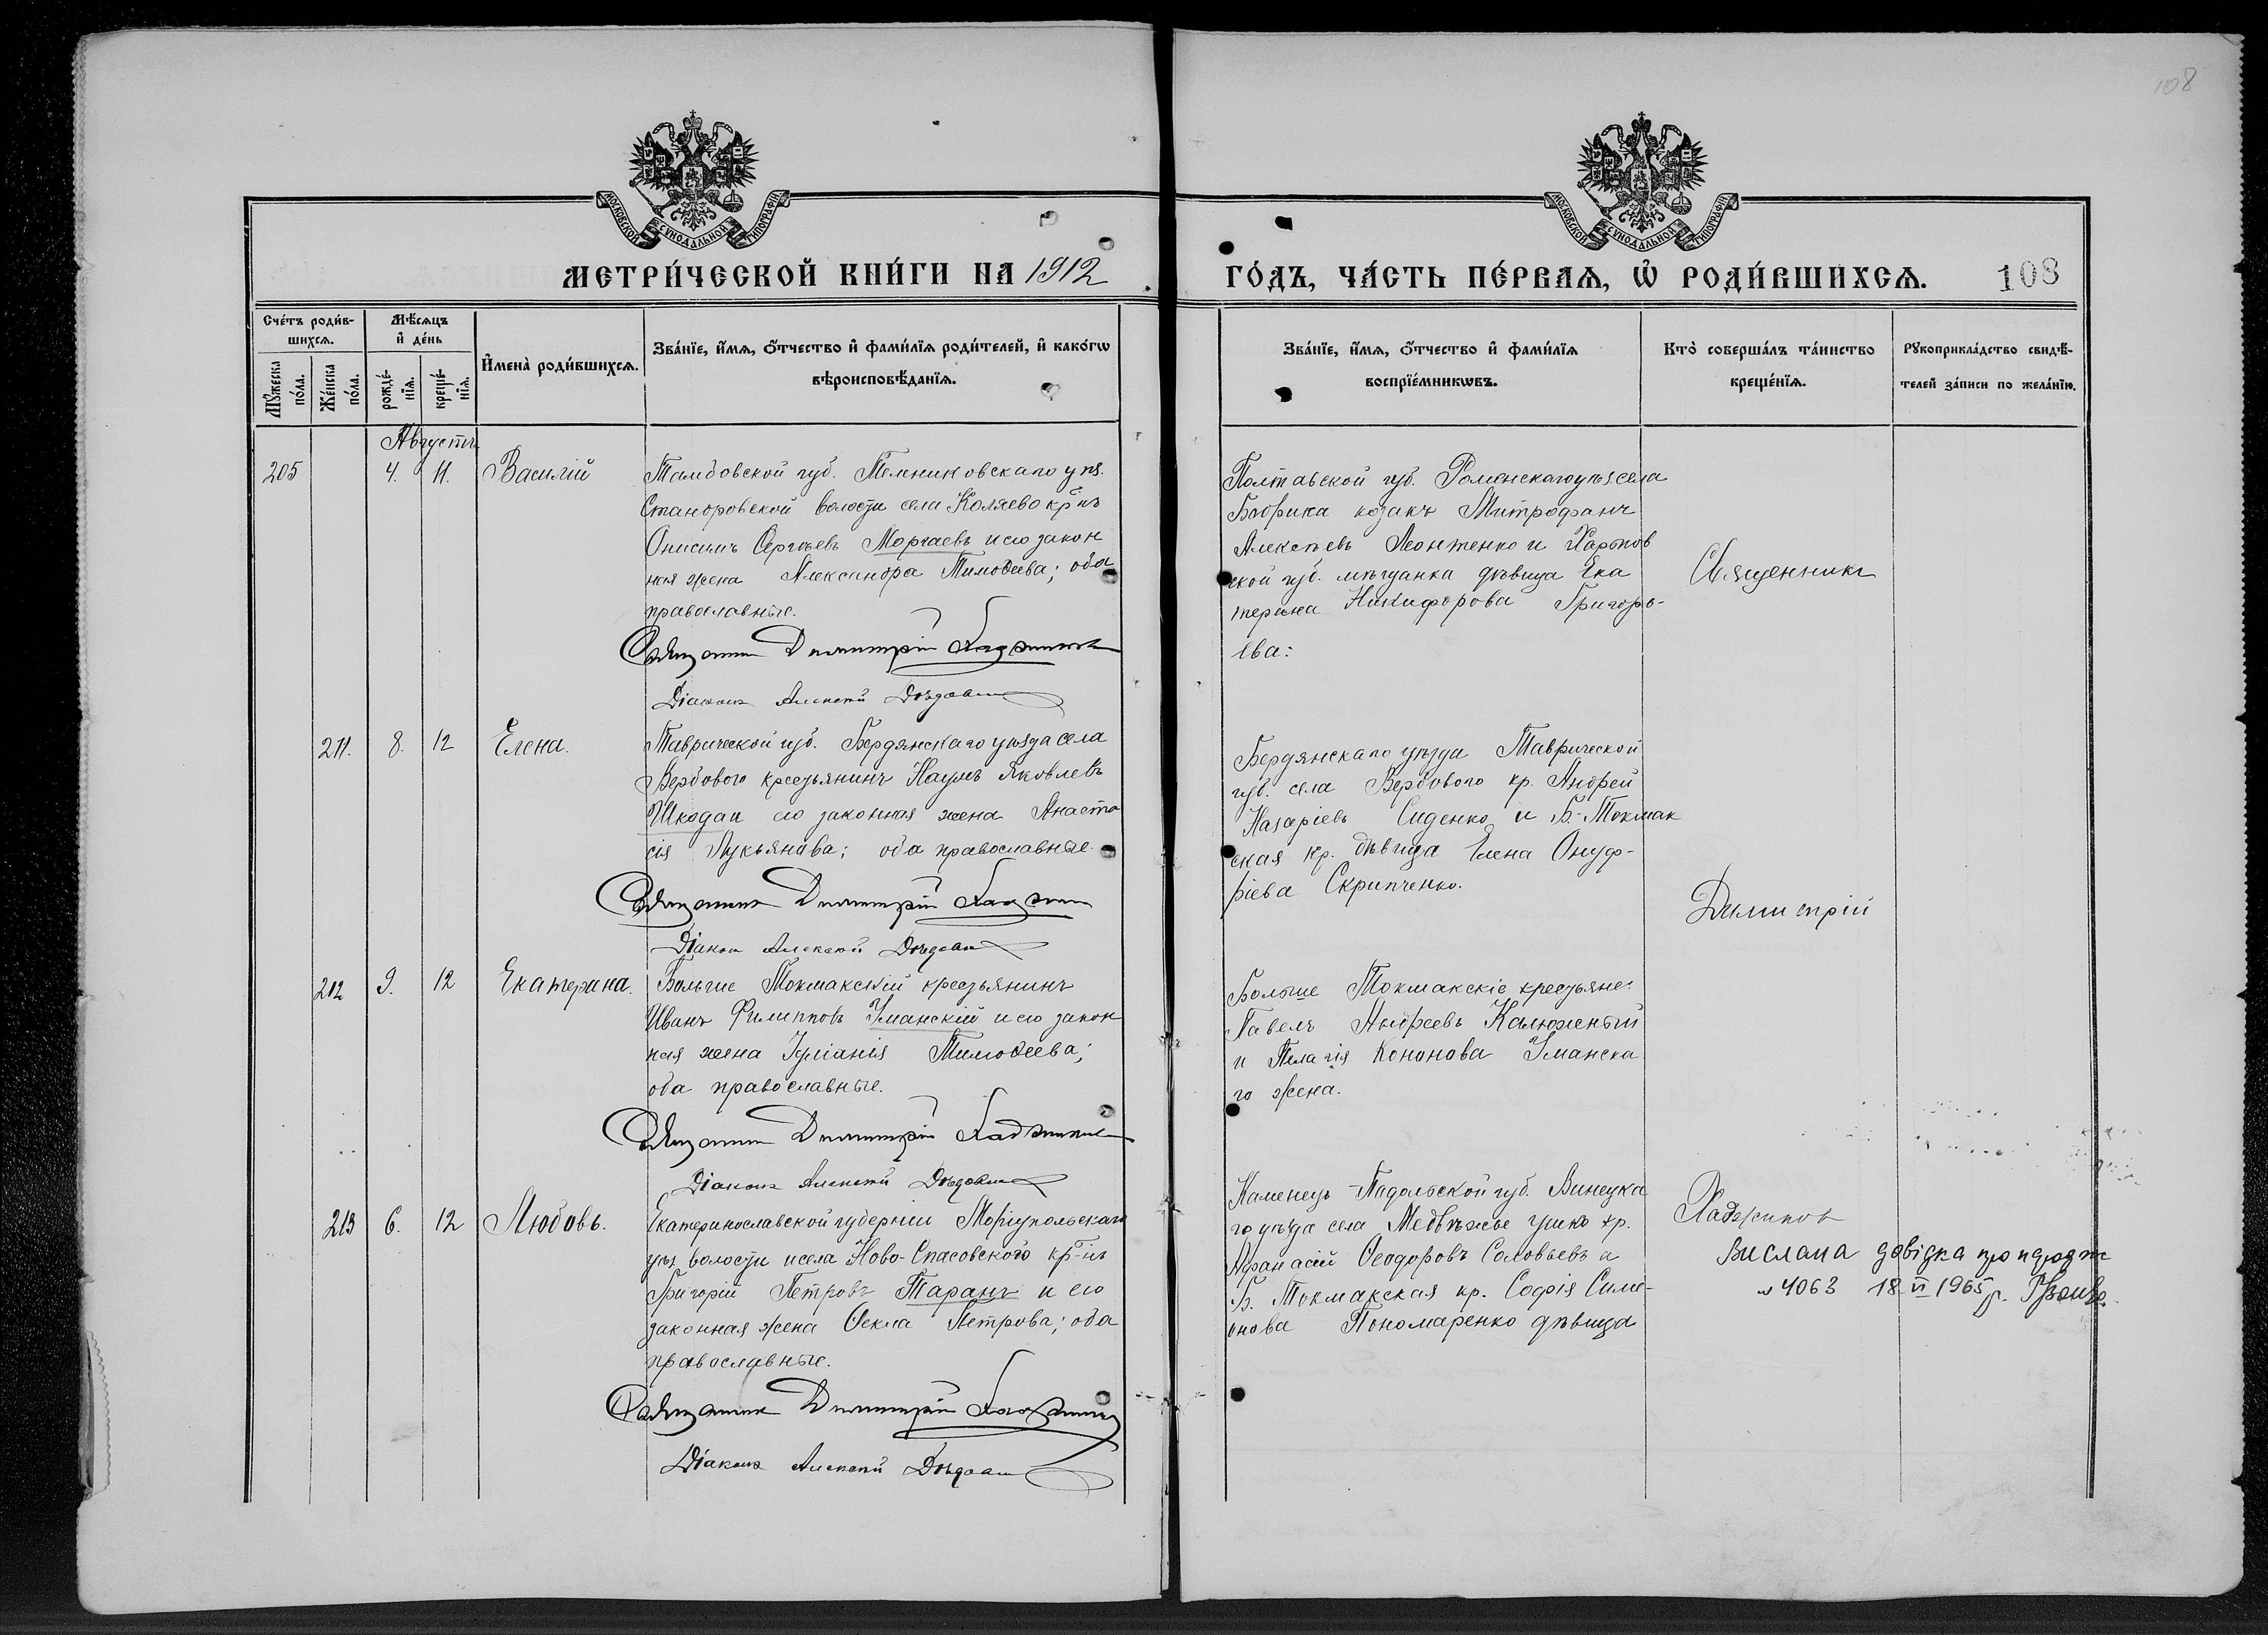 108
МОСКОВСКОЙ СУНОДАЛЬНОЙ ТИПОГРАФІИ
МОСКОВСКОЙ СУНОДАЛЬНОЙ ТИПОГРАФІИ
МЕТРИ́ЧЕСКОЙ КНИ́ГИ НА 1912
ГО́ДЪ, ЧА́СТЬ ПЕ́РВАѦ, Ѡ҆ РОДИ́ВШИХСѦ. 108
Сче́тъ роди́в-
шихсѧ.
Мꙋ́жеска по́ла.
Же́нска по́ла.
Мѣ́сѧцъ
и҆ де́нь
рожде́-
нїѧ.
креще́-
нїѧ.
И҆мена̀ роди́вшихсѧ.
Зва́нїе, и҆́мѧ, ѻ҆́тчество и҆ фами́лїѧ роди́телей, и҆ како́гѡ
вѣроисповѣ́данїѧ.
Зва́нїе, и҆́мѧ, ѻ҆́тчество и҆ фами́лїѧ
воспрїе́мникѡвъ.
Кто̀ соверша́лъ та́инство
креще́нїѧ.
Рꙋкоприкла́дство свидѣ́-
телей за́писи по жела́нїю.
Августъ
205 4. 11. Василій
Тамбовской губ. Темниковскаго уѣз.
Стандровской волости села Коляево кр-нъ
Онисимъ Сергѣевъ Моргаевъ и его закон
ная жена Александра Тимоѳеева; оба
православные.
Священникъ Димитрій Хаджиновъ
Діаконъ Алексѣй
Полтавской губ. Роменскаго уѣз. села
Бобрика козакъ Митрофанъ
Алексѣевъ Леонтенко и Харьков
ской губ. мѣщанка дѣвица Ека
терина Никифорова Григорь-
ева:
Священникъ
211. 8. 12 Елена.
Таврической губ. Бердянскаго уѣзда села
Вербового крестьянинъ Наумъ Яковлевъ
Шкода и его законная жена Анаста
сія Лукьянова; оба православные.
Священникъ Димитрій Хаджиновъ
Діаконъ Алексѣй
Бердянскаго уѣзда Таврической
губ. села Вербового кр. Андрей
Назаріевъ Сиденко и Б.-Токмак
ская кр. дѣвица Елена Онуф-
ріева Скрипченко.
Димитрій
212 9. 12 Екатерина.
Больше Токмакскій крестьянинъ
Иванъ Филипповъ Уманскій и его закон
ная жена Іуліанія Тимоѳеева;
оба православные.
Священникъ Димитрій Хаджиновъ
Діаконъ Алексѣй
Больше Токмакскіе крестьяне:
Павелъ Андреевъ Калюженый
и Пелагія Кононова Уманска
го жена.
213 6. 12 Любовь.
Екатеринославской губерніи Маріупольскаго
уѣз волости и села Ново-Спасовского кр-нъ
Григорій Петровъ Таранъ и его
законная жена Ѳекла Петрова; оба
православные.
Священникъ Димитрій Хаджиновъ
Діаконъ Алексѣй
Каменецъ-Падольской губ. Винецка
го уѣзда села Медвѣжье ушко кр.
Афанасій Ѳеодоровъ Соловьевъ а
Б. Токмакская кр. Софія Сими-
онова Пономаренко дѣвица
Хаджиновъ
Вислана довідка про народж
№ 4063 18 VI 1965 р.